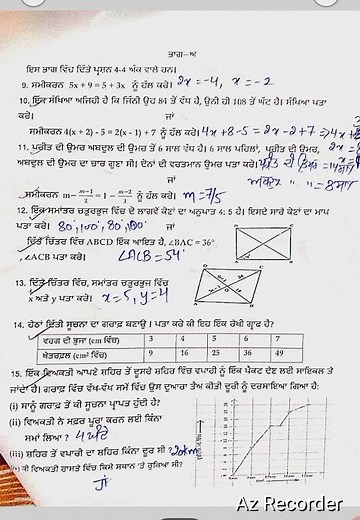 ਭਾਗ—ਅ
ਇਸ ਭਾਗ ਵਿੱਚ ਦਿੱਤੇ ਪ੍ਰਸ਼ਨ 4-4 ਅੰਕ ਵਾਲੇ ਹਨ।
9. ਸਮੀਕਰਨ 5x + 9 = 5 + 3x ਨੂੰ ਹੱਲ ਕਰੋ। 2x = -4, x = -2
10. ਇਕ ਸੰਖਿਆ ਅਜਿਹੀ ਹੈ ਕਿ ਜਿੰਨੀ ਉਹ 84 ਤੋਂ ਵੱਧ ਹੈ, ਉਨੀ ਹੀ 108 ਤੋਂ ਘੱਟ ਹੈ। ਸੰਖਿਆ ਪਤਾ
ਕਰੋ। ਜਾਂ
ਸਮੀਕਰਨ 4(x + 2) - 5 = 2(x - 1) + 7 ਨੂੰ ਹੱਲ ਕਰੋ। 4x + 8 - 5 = 2x - 2 + 7
11. ਪ੍ਰੀਤ ਦੀ ਉਮਰ ਅਬਦੁਲ ਦੀ ਉਮਰ ਤੋਂ 6 ਸਾਲ ਵੱਧ ਹੈ। 6 ਸਾਲ ਪਹਿਲਾਂ, ਪ੍ਰੀਤ ਦੀ ਉਮਰ,
ਅਬਦੁਲ ਦੀ ਉਮਰ ਦਾ ਚਾਰ ਗੁਣਾ ਸੀ। ਦੋਨਾਂ ਦੀ ਵਰਤਮਾਨ ਉਮਰ ਪਤਾ ਕਰੋ।
ਜਾਂ
ਸਮੀਕਰਨ m - (m-1)/2 = 1 - (m-2)/3 ਨੂੰ ਹੱਲ ਕਰੋ। m = 7/5
12. ਇਕ ਸਮਾਂਤਰ ਚਤੁਰਭੁਜ ਵਿੱਚ ਦੋ ਲਾਗਵੇਂ ਕੋਣਾਂ ਦਾ ਅਨੁਪਾਤ 4: 5 ਹੈ। ਇਸਦੇ ਸਾਰੇ ਕੋਣਾਂ ਦਾ ਮਾਪ
ਪਤਾ ਕਰੋ। 80°, 100°, 80°, 100° ਜਾਂ
ਚਿੱਤਰ ਵਿੱਚ ABCD ਇੱਕ ਆਇਤ ਹੈ, ∠BAC = 36°
∠ACB ਪਤਾ ਕਰੋ। ∠ACB = 54°
13. ਦਿੱਤੇ ਚਿੱਤਰ ਵਿੱਚ, ਸਮਾਂਤਰ ਚਤੁਰਭੁਜ ਵਿੱਚ
x ਅਤੇ y ਪਤਾ ਕਰੋ। x = 5, y = 4
14. ਹੇਠਾਂ ਦਿੱਤੀ ਸੂਚਨਾ ਦਾ ਗਰਾਫ਼ ਬਣਾਉ । ਪਤਾ ਕਰੋ ਕੀ ਇਹ ਇੱਕ ਰੇਖੀ ਗ੍ਰਾਫ ਹੈ?
ਵਰਗ ਦੀ ਭੁਜਾ (cm ਵਿੱਚ) 3 4 5 6 7
ਖੇਤਰਫਲ (cm² ਵਿੱਚ) 9 16 25 36 49
15. ਇੱਕ ਵਿਅਕਤੀ ਆਪਣੇ ਸ਼ਹਿਰ ਤੋਂ ਦੂਸਰੇ ਸ਼ਹਿਰ ਵਿੱਚ ਵਪਾਰੀ ਨੂੰ ਇੱਕ ਪੈਕਟ ਦੇਣ ਲਈ ਸਾਇਕਲ ਤੇ
ਜਾਂਦਾ ਹੈ। ਗਰਾਫ਼ ਵਿੱਚ ਵੱਖ-ਵੱਖ ਸਮੇਂ ਵਿੱਚ ਉਸ ਦੁਆਰਾ ਤੈਅ ਕੀਤੀ ਦੂਰੀ ਨੂੰ ਦਰਸਾਇਆ ਗਿਆ ਹੈ:
(i) ਸਾਨੂੰ ਗਰਾਫ਼ ਤੋਂ ਕੀ ਸੂਚਨਾ ਪ੍ਰਾਪਤ ਹੁੰਦੀ ਹੈ?
(ii) ਵਿਅਕਤੀ ਨੇ ਸਫ਼ਰ ਪੂਰਾ ਕਰਨ ਲਈ ਕਿੰਨਾ
ਸਮਾਂ ਲਿਆ ? 4 ਘੰਟੇ
(iii) ਸ਼ਹਿਰ ਤੋਂ ਵਪਾਰੀ ਦਾ ਸ਼ਹਿਰ ਕਿੰਨਾ ਦੂਰ ਸੀ ?
ਕੀ ਵਿਅਕਤੀ ਰਾਸਤੇ ਵਿੱਚ ਕਿਸੇ ਸਥਾਨ 'ਤੇ ਰੁਕਿਆ ਸੀ?
ਹਾਂ
Az Recorder